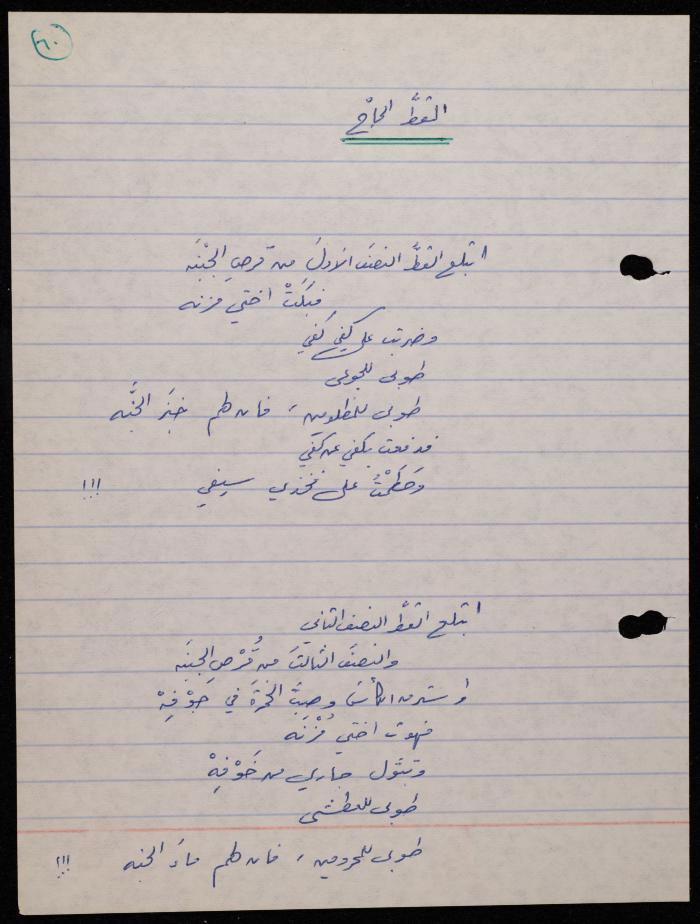 ٦٠
القطَّ الحاجّ
ابتلع القطَّ النصفَ الاولَ من قرصِ الجُبْنَه
فبَكَتْ اختي مزنه
وضربت على كفي كفي
طوبى للجوعى
طوبى للمظلومين، فان لهم خبزَ الجنَّه
فدفعت بكفي عن كفي
وحَطَمْتُ على فخذي سيفي !!!
ابتلع القطَّ النصفَ الثاني
والنصفَ الثالثَ من قُرْصِ الجبنَه
واستدر الكأسَ وصبَّ الخمرةَ في جَوْفِهْ
فهوت اختي مُزْنَه
وتبَوَّل جاري من خَوْفِهْ
طوبى للعطشى
طوبى للمحرومين، فان لهم ماءَ الجنه !!!